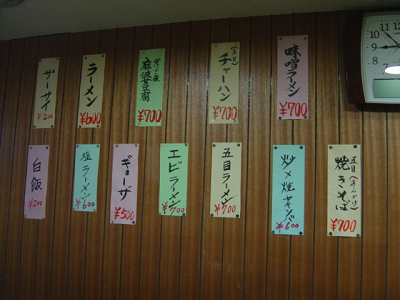 サーサイ
¥200
ラーメン
¥600
麻婆豆腐
¥700
(五目)
チャーハン
¥700
味噌ラーメン
¥700
白飯
¥200
塩ラーメン
¥600
ギョーザ
¥500
エビラーメン
¥700
五目ラーメン
¥700
¥600
五目(あんかけ)
焼きそば
¥700